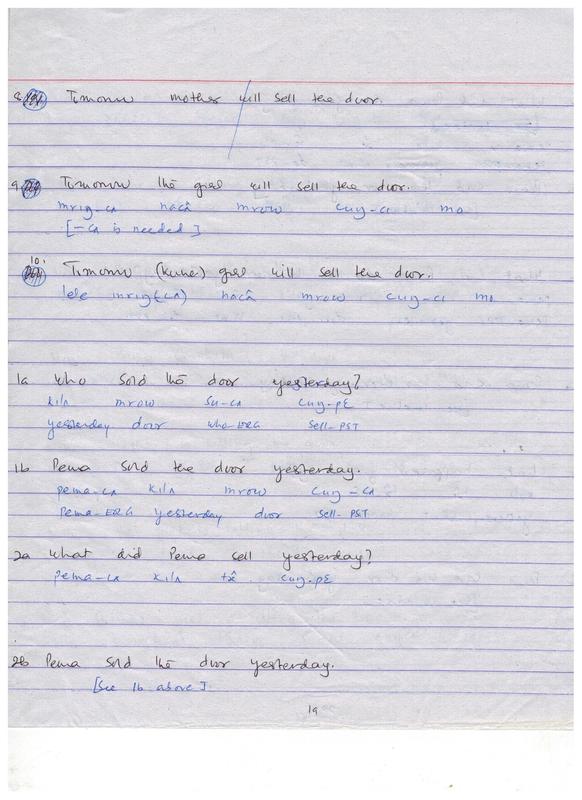 8. Tomorrow mother will sell the door.
9. Tomorrow the girl will sell the door.
mrig-ca nacâ mrow cuŋ-ci mo
[-ca is needed]
10. Tomorrow (kuhe) girl will sell the door.
lele mrig(ca) nacâ mrow cuŋ-ci mo
1a Who sold the door yesterday?
kilʌ mrow su-ca cuŋ-pɛ
yesterday door who-ERG sell-PST
1b Pema sold the door yesterday.
pema-ca kilʌ mrow cuŋ-ca
pema-ERG yesterday door sell-PST
2a What did Pema sell yesterday?
pema-ca kilʌ tê cuŋ-pɛ
2b Pema sold the door yesterday.
[See 1b above]
19